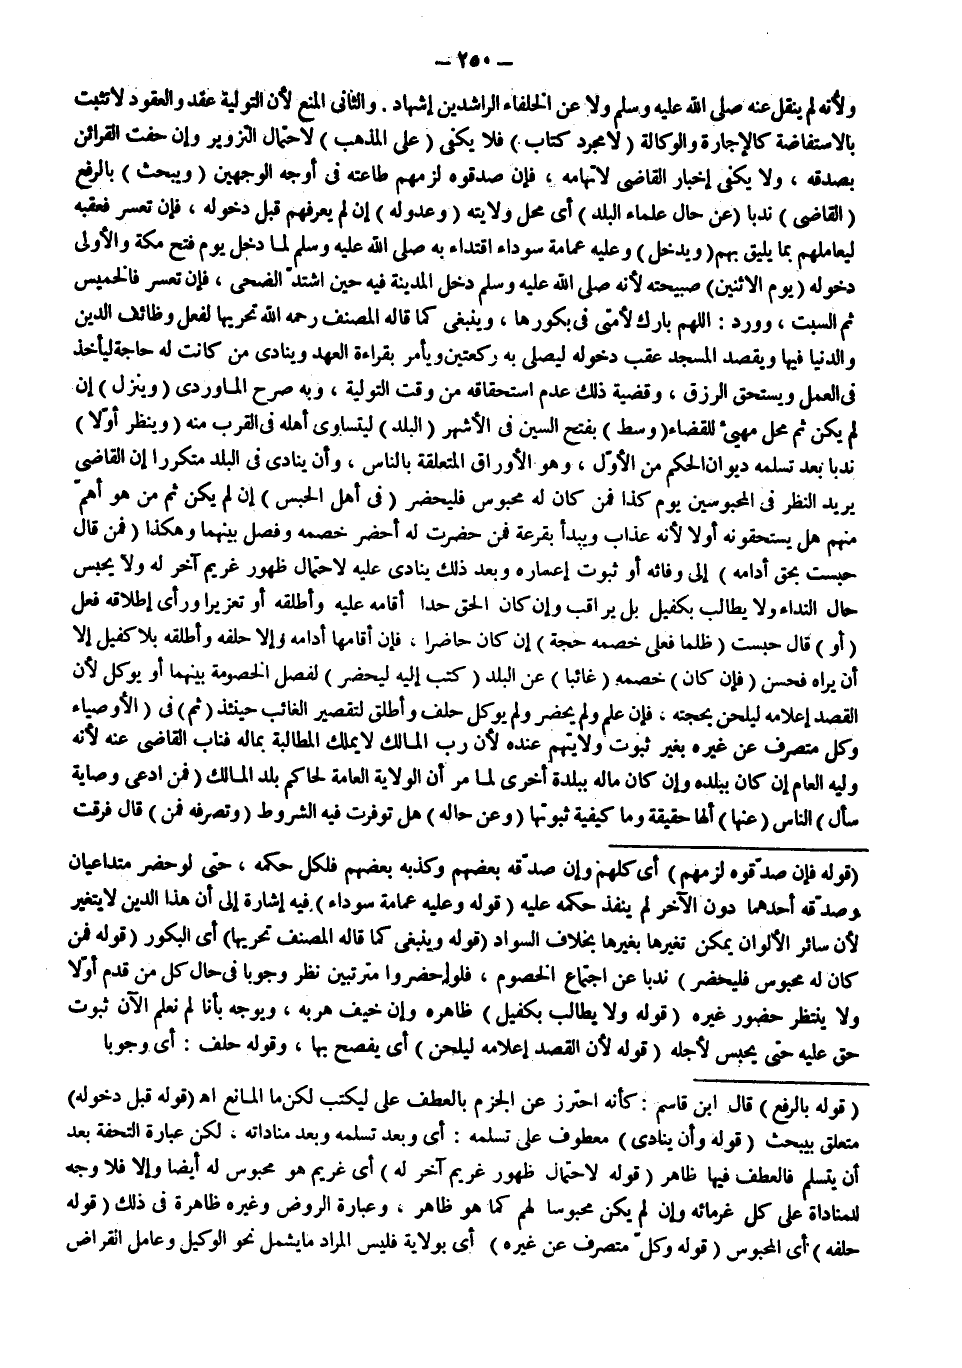 — ٢٥٠ —
ولأنه لم ينقل عنه صلى الله عليه وسلم ولا عن الخلفاء الراشدين إشهاد . والثانى المنع لأن التولية عقد والعقود لاتثبت
بالاستفاضة كالإجارة والوكالة ( لامجرد كتاب ) فلا يكفى ( على المذهب ) لاحتمال التزوير وإن حفت القرائن
بصدقه ، ولا يكفى إخبار القاضى لاتهامه ، فإن صدقوه لزمهم طاعته فى أوجه الوجهين ( ويبحث ) بالرفع
( القاضى ) ندبا (عن حال علماء البلد ) أى محل ولايته ( وعدوله ) إن لم يعرفهم قبل دخوله ، فإن تعسر فعقبه
ليعاملهم بما يليق بهم( ويدخل ) وعليه عمامة سوداء اقتداء به صلى الله عليه وسلم لما دخل يوم فتح مكة والأولى
دخوله ( يوم الاثنين) صبيحته لأنه صلى الله عليه وسلم دخل المدينة فيه حين اشتدّ الضحى ، فإن تعسر فالخميس
ثم السبت ، وورد : اللهم بارك لأمتى فى بكورها ، وينبغى كما قاله المصنف رحمه الله تحريها لفعل وظائف الدين
والدنيا فيها ويقصد المسجد عقب دخوله ليصلى به ركعتين ويأمر بقراءة العهد وينادى من كانت له حاجة ليأخذ
فى العمل ويستحق الرزق ، وقضية ذلك عدم استحقاقه من وقت التولية ، وبه صرح الماوردى ( وينزل ) إن
لم يكن ثم محل مهيئ للقضاء( وسط ) بفتح السين فى الأشهر ( البلد ) ليتساوى أهله فى القرب منه ( وينظر أوّلا )
ندبا بعد تسلمه ديوان الحكم من الأوّل ، وهو الأوراق المتعلقة بالناس ، وأن ينادى فى البلد متكررا إن القاضى
يريد النظر فى المحبوسين يوم كذا فمن كان له محبوس فليحضر ( فى أهل الحبس ) إن لم يكن ثم من هو أهمّ
منهم هل يستحقونه أولا لأنه عذاب ويبدأ بقرعة فمن حضرت له أحضر خصمه وفصل بينهما وهكذا ( فمن قال
حبست بحق أدامه ) إلى وفائه أو ثبوت إعساره وبعد ذلك ينادى عليه لاحتمال ظهور غريم آخر له ولا يحبس
حال النداء ولا يطالب بكفيل بل يراقب وإن كان الحق حدا أقامه عليه وأطلقه أو تعزيرا ورأى إطلاقه فعل
( أو ) قال حبست ( ظلما فعلى خصمه حجة ) إن كان حاضرا ، فإن أقامها أدامه وإلا حلفه وأطلقه بلا كفيل إلا
أن يراه فحسن ( فإن كان ) خصمه ( غائبا ) عن البلد ( كتب إليه ليحضر ) لفصل الخصومة بينهما أو يوكل لأن
القصد إعلامه ليلحن بحجته ، فإن علم ولم يحضر ولم يوكل حلف وأطلق لتقصير الغائب حينئذ ( ثم) فى ( الأوصياء
وكل متصرف عن غيره بغير ثبوت ولايتهم عنده لأن رب المالك لايملك المطالبة بماله فناب القاضى عنه لأنه
وليه العام إن كان ببلده وإن كان ماله ببلدة أخرى لما مر أن الولاية العامة لحاكم بلد المالك ( فمن ادعى وصاية
سأل ) الناس ( عنها ) ألها حقيقة وما كيفية ثبوتها ( وعن حاله ) هل توفرت فيه الشروط ( وتصرفه فمن ) قال فرقت
(قوله فإن صدّقوه لزمهم) أى كلهم وإن صدّقه بعضهم وكذبه بعضهم فلكل حكمه ، حتى لو حضر متداعيان
وصدّقه أحدهما دون الآخر لم ينفذ حكمه عليه ( قوله وعليه عمامة سوداء ) فيه إشارة إلى أن هذا الدين لايتغير
لأن سائر الألوان يمكن تغيرها بغيرها بخلاف السواد (قوله وينبغى كما قاله المصنف تحريها) أى البكور ( قوله فمن
كان له محبوس فليحضر ) ندبا عن اجتماع الخصوم ، فلو حضروا مترتبين نظر وجوبا فى حال كل من قدم أوّلا
ولا ينتظر حضور غيره ( قوله ولا يطالب بكفيل ) ظاهره وإن خيف هربه ، ويوجه بأنا لم نعلم الآن ثبوت
حق عليه حتى يحبس لأجله ( قوله لأن القصد إعلامه ليلحن ) أى يفصح بها ، وقوله حلف : أى وجوبا
( قوله بالرفع ) قال ابن قاسم : كأنه احترز عن الجزم بالعطف على ليكتب لكن ما المانع اه (قوله قبل دخوله)
متعلق بيبحث ( قوله وأن ينادى ) معطوف على تسلمه : أى وبعد تسلمه وبعد مناداته ، لكن عبارة التحفة بعد
أن يتسلم فالعطف فيها ظاهر ( قوله لاحتمال ظهور غريم آخر له ) أى غريم هو محبوس له أيضا وإلا فلا وجه
للمناداة على كل غرمائه وإن لم يكن محبوسا لهم كما هو ظاهر ، وعبارة الروض وغيره ظاهرة فى ذلك ( قوله
حلفه ) أى المحبوس ( قوله وكلّ متصرف عن غيره ) أى بولاية فليس المراد مايشمل نحو الوكيل وعامل القراض